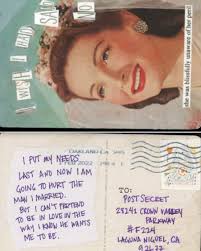 I WISH I HAD SAID NO
she was blissfully unaware of her peril
OAKLAND CA 945
FEB 2022 PM
I PUT MY NEEDS
LAST AND NOW I AM
GOING TO HURT THE
MAN I MARRIED.
BUT I CAN'T PRETEND
TO BE IN LOVE IN THE
WAY I KNOW HE WANTS
ME TO BE.
TO:
POST SECRET
28241 CROWN VALLEY
PARKWAY
#F224
LAGUNA NIGUEL, CA
92677